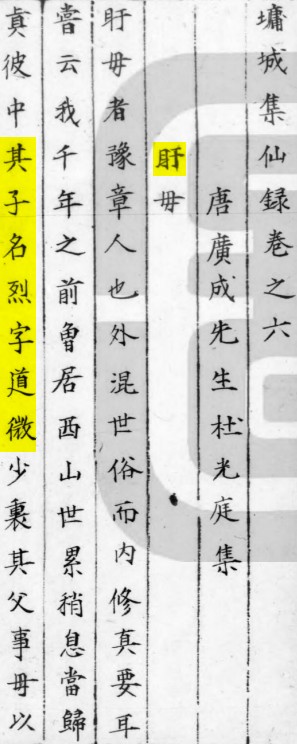 墉城集仙録卷之六
唐廣成先生杜光庭集
盱母
盱母者豫章人也外混世俗而内修真要耳
嘗云我千年之前曾居西山世累稍息當歸
真彼中其子名烈字道微少喪其父事母以